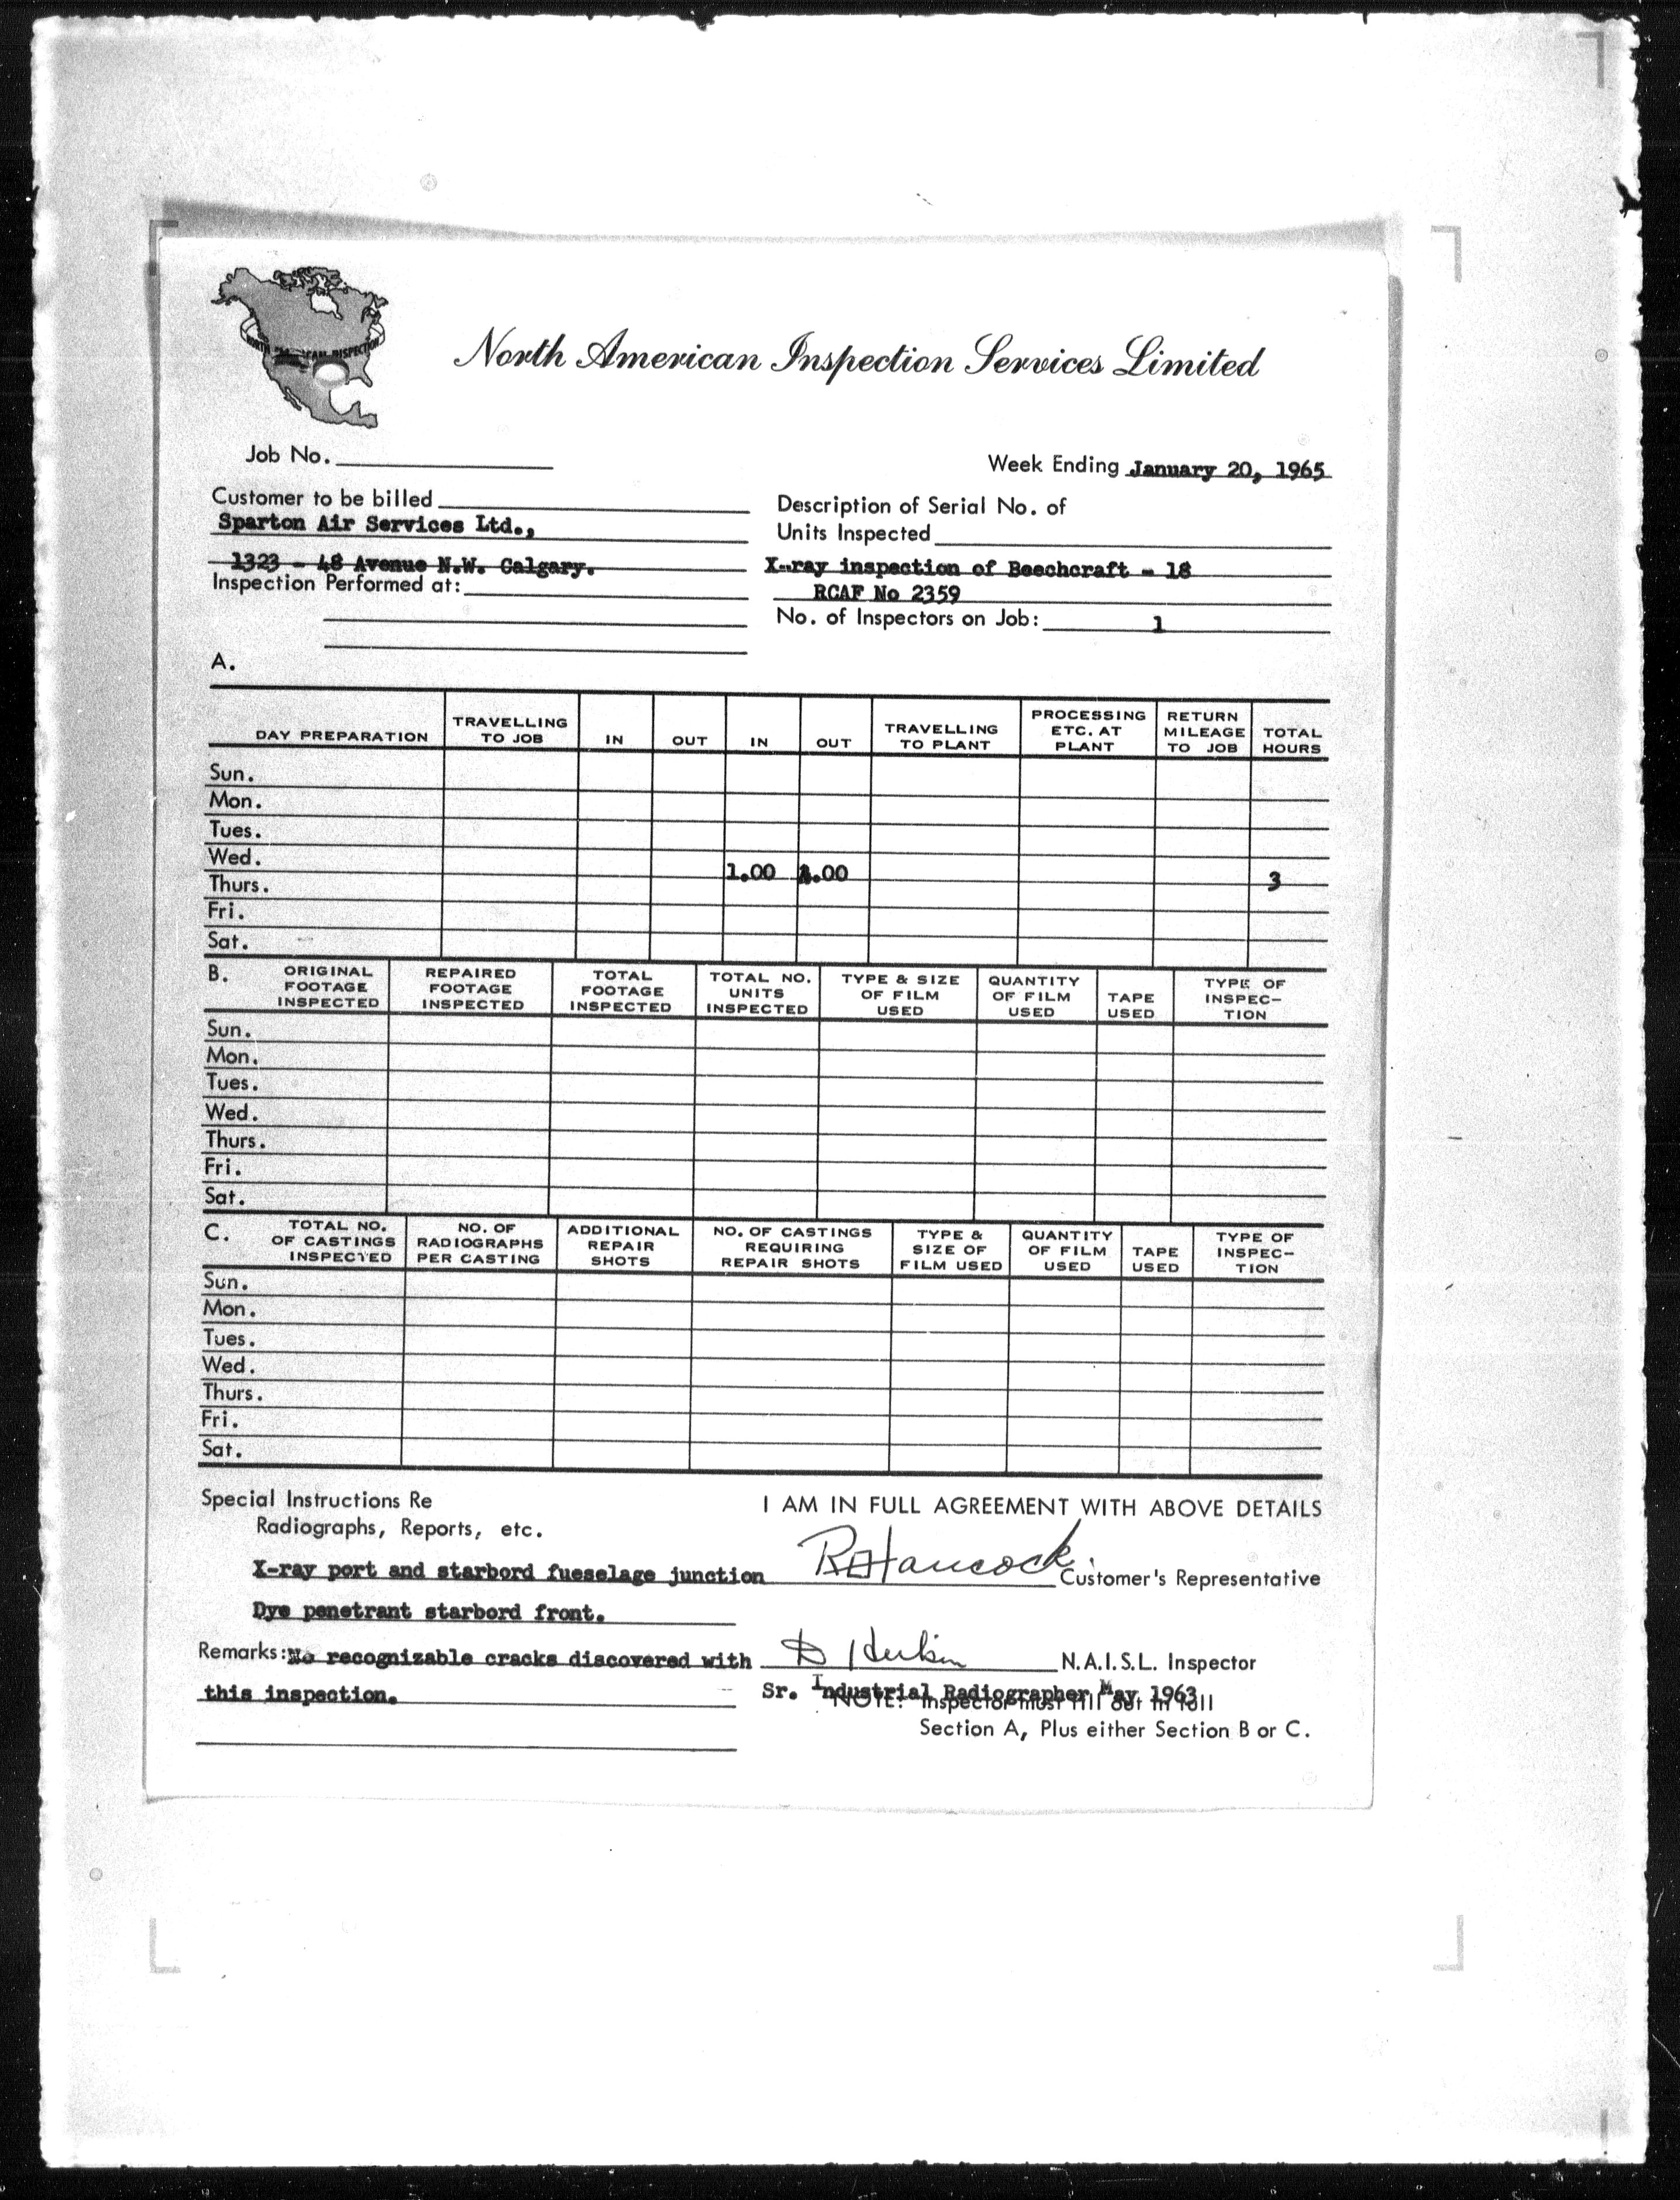 North American Inspection Services Limited
Job No.
Week Ending January 20, 1965
Customer to be billed
Sparton Air Services Ltd.,
1323 - 48 Avenue N.W. Calgary.
Inspection Performed at:
Description of Serial No. of
Units Inspected
X-ray inspection of Beechcraft - 18
RCAF No 2359
No. of Inspectors on Job: 1
A.
DAY PREPARATION TRAVELLING TO JOB IN OUT IN OUT TRAVELLING TO PLANT PROCESSING ETC. AT PLANT RETURN MILEAGE TO JOB TOTAL HOURS
Sun.
Mon.
Tues.
Wed.
Thurs. 1.00 4.00 3
Fri.
Sat.
B. ORIGINAL FOOTAGE INSPECTED REPAIRED FOOTAGE INSPECTED TOTAL FOOTAGE INSPECTED TOTAL NO. UNITS INSPECTED TYPE & SIZE OF FILM USED QUANTITY OF FILM USED TAPE USED TYPE OF INSPEC-TION
Sun.
Mon.
Tues.
Wed.
Thurs.
Fri.
Sat.
C. TOTAL NO. OF CASTINGS INSPECTED NO. OF RADIOGRAPHS PER CASTING ADDITIONAL REPAIR SHOTS NO. OF CASTINGS REQUIRING REPAIR SHOTS TYPE & SIZE OF FILM USED QUANTITY OF FILM USED TAPE USED TYPE OF INSPEC-TION
Sun.
Mon.
Tues.
Wed.
Thurs.
Fri.
Sat.
Special Instructions Re
Radiographs, Reports, etc.
X-ray port and starbord fueselage junction
Dye penetrant starbord front.
Remarks: No recognizable cracks discovered with
this inspection.
I AM IN FULL AGREEMENT WITH ABOVE DETAILS
Hancock
Customer's Representative
N.A.I.S.L. Inspector
Sr. Industrial Radiographer May 1963
NOTE: Inspector must fill out in full
Section A, Plus either Section B or C.